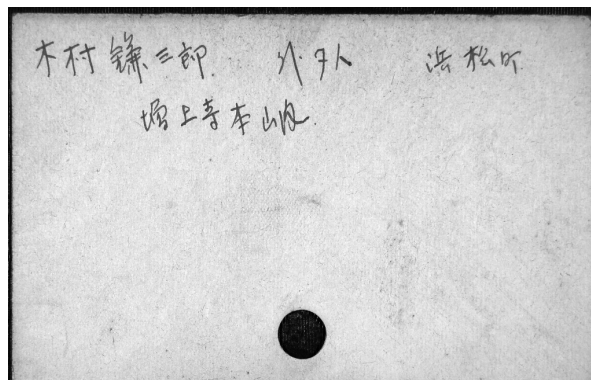 木村鎌三郎 外7人 浜松町
増上寺本堂